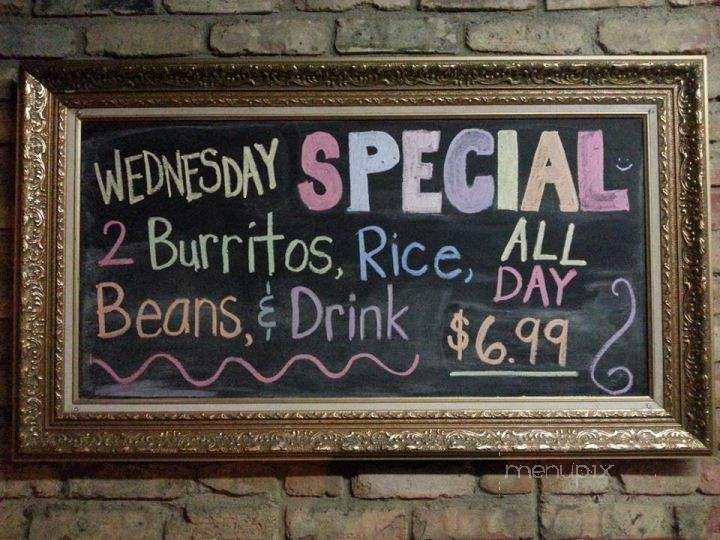 WEDNESDAY SPECIAL
2 Burritos, Rice,
Beans, & Drink
ALL
DAY
$6.99
menupix